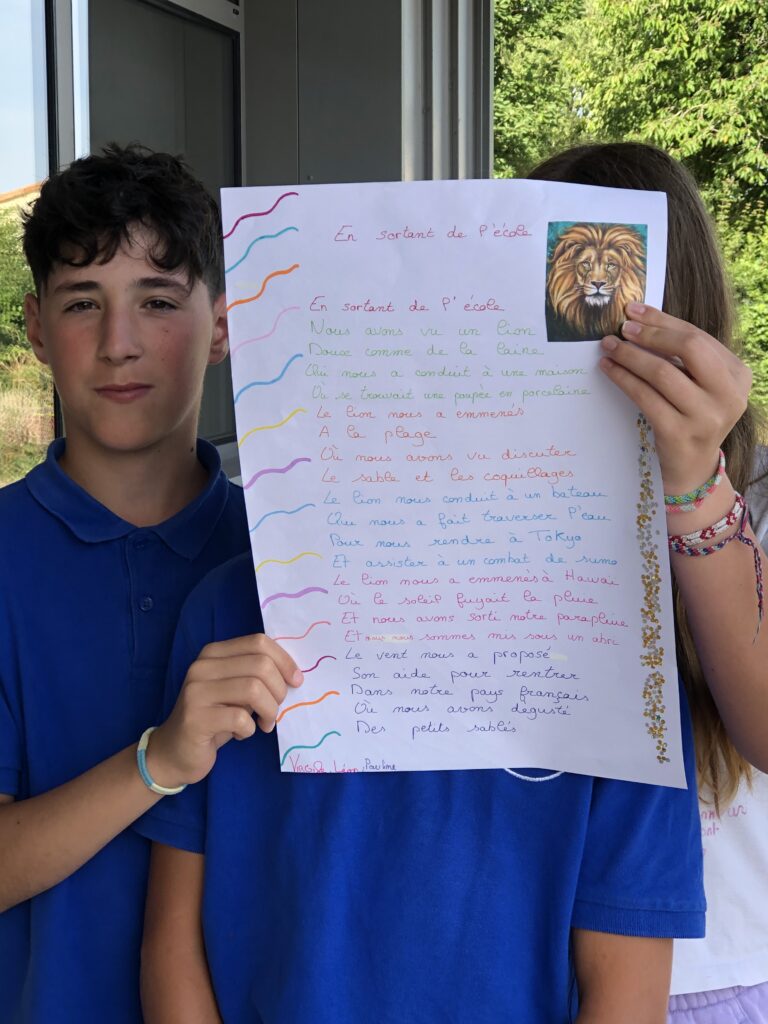 En sortant de l'école
En sortant de l'école
Nous avons vu un lion
Doux comme de la laine
Qui nous a conduit à une maison
Où se trouvait une poupée en porcelaine
Le lion nous a emmenés
A la plage
Où nous avons vu discuter
Le sable et les coquillages
Le lion nous conduit à un bateau
Qui nous a fait traverser l'eau
Pour nous rendre à Tokyo
Et assister à un combat de sumo
Le lion nous a emmenés à Hawaï
Où le soleil fuyait la pluie
Et nous avons sorti notre parapluie
Et nous nous sommes mis sous un abri
Le vent nous a proposé
Son aide pour rentrer
Dans notre pays français
Où nous avons dégusté
Des petits sablés
Léon, Pauline